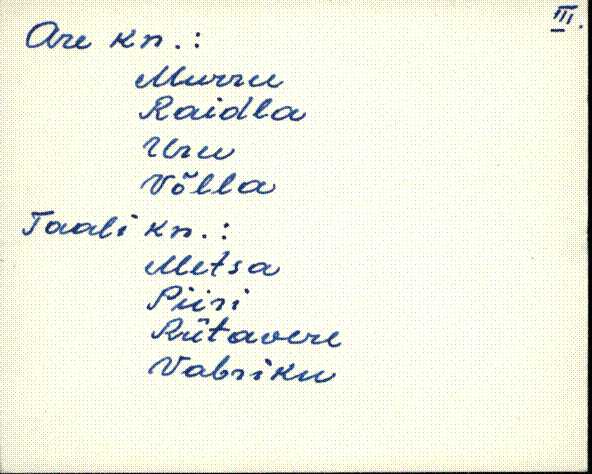 III.
Are kn.:
Murru
Raidla
Uru
Võlla
Taali kn.:
Metsa
Piiri
Rütavere
Vabriku